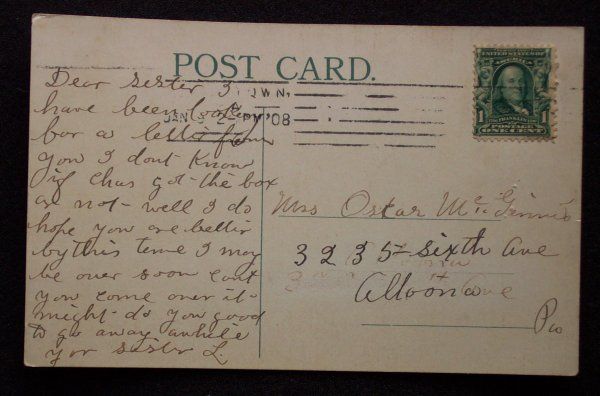 POST CARD.
Dear Sister I
have been looking
for a letter from
you I dont Know
if Chas got the box
or not well I do
hope you are better
by this time I may
be over soon cant
you come over it
might do you good
to go away awhile
yor sister L.
OWN,
JAN 2- PM '08
UNITED STATES OF AMERICA
1 FRANKLIN 1
POSTAGE
ONE CENT
Mrs Oscar McGinnis
3235 Sixth Ave
Altoona
Pa